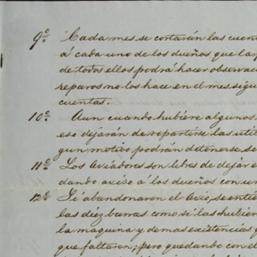 9º Cada mes se cortarán las cuen
á cada uno de los dueños que la p
de todos ellos podrá hacer observac
reparos no los hace en el mes sigu
cuentas.
10º Aun cuando hubiere algunos
eso dejarán de repartirse las util
gun motivo podrán detenerse, se
11º Los Aviadores son libres de dejar e
dando aviso á los dueños con un
12º Si abandonaren el Avío, se enti
las diez barras como si las hubier
la maquina y demas existencias q
que faltaren; pero quedando con el